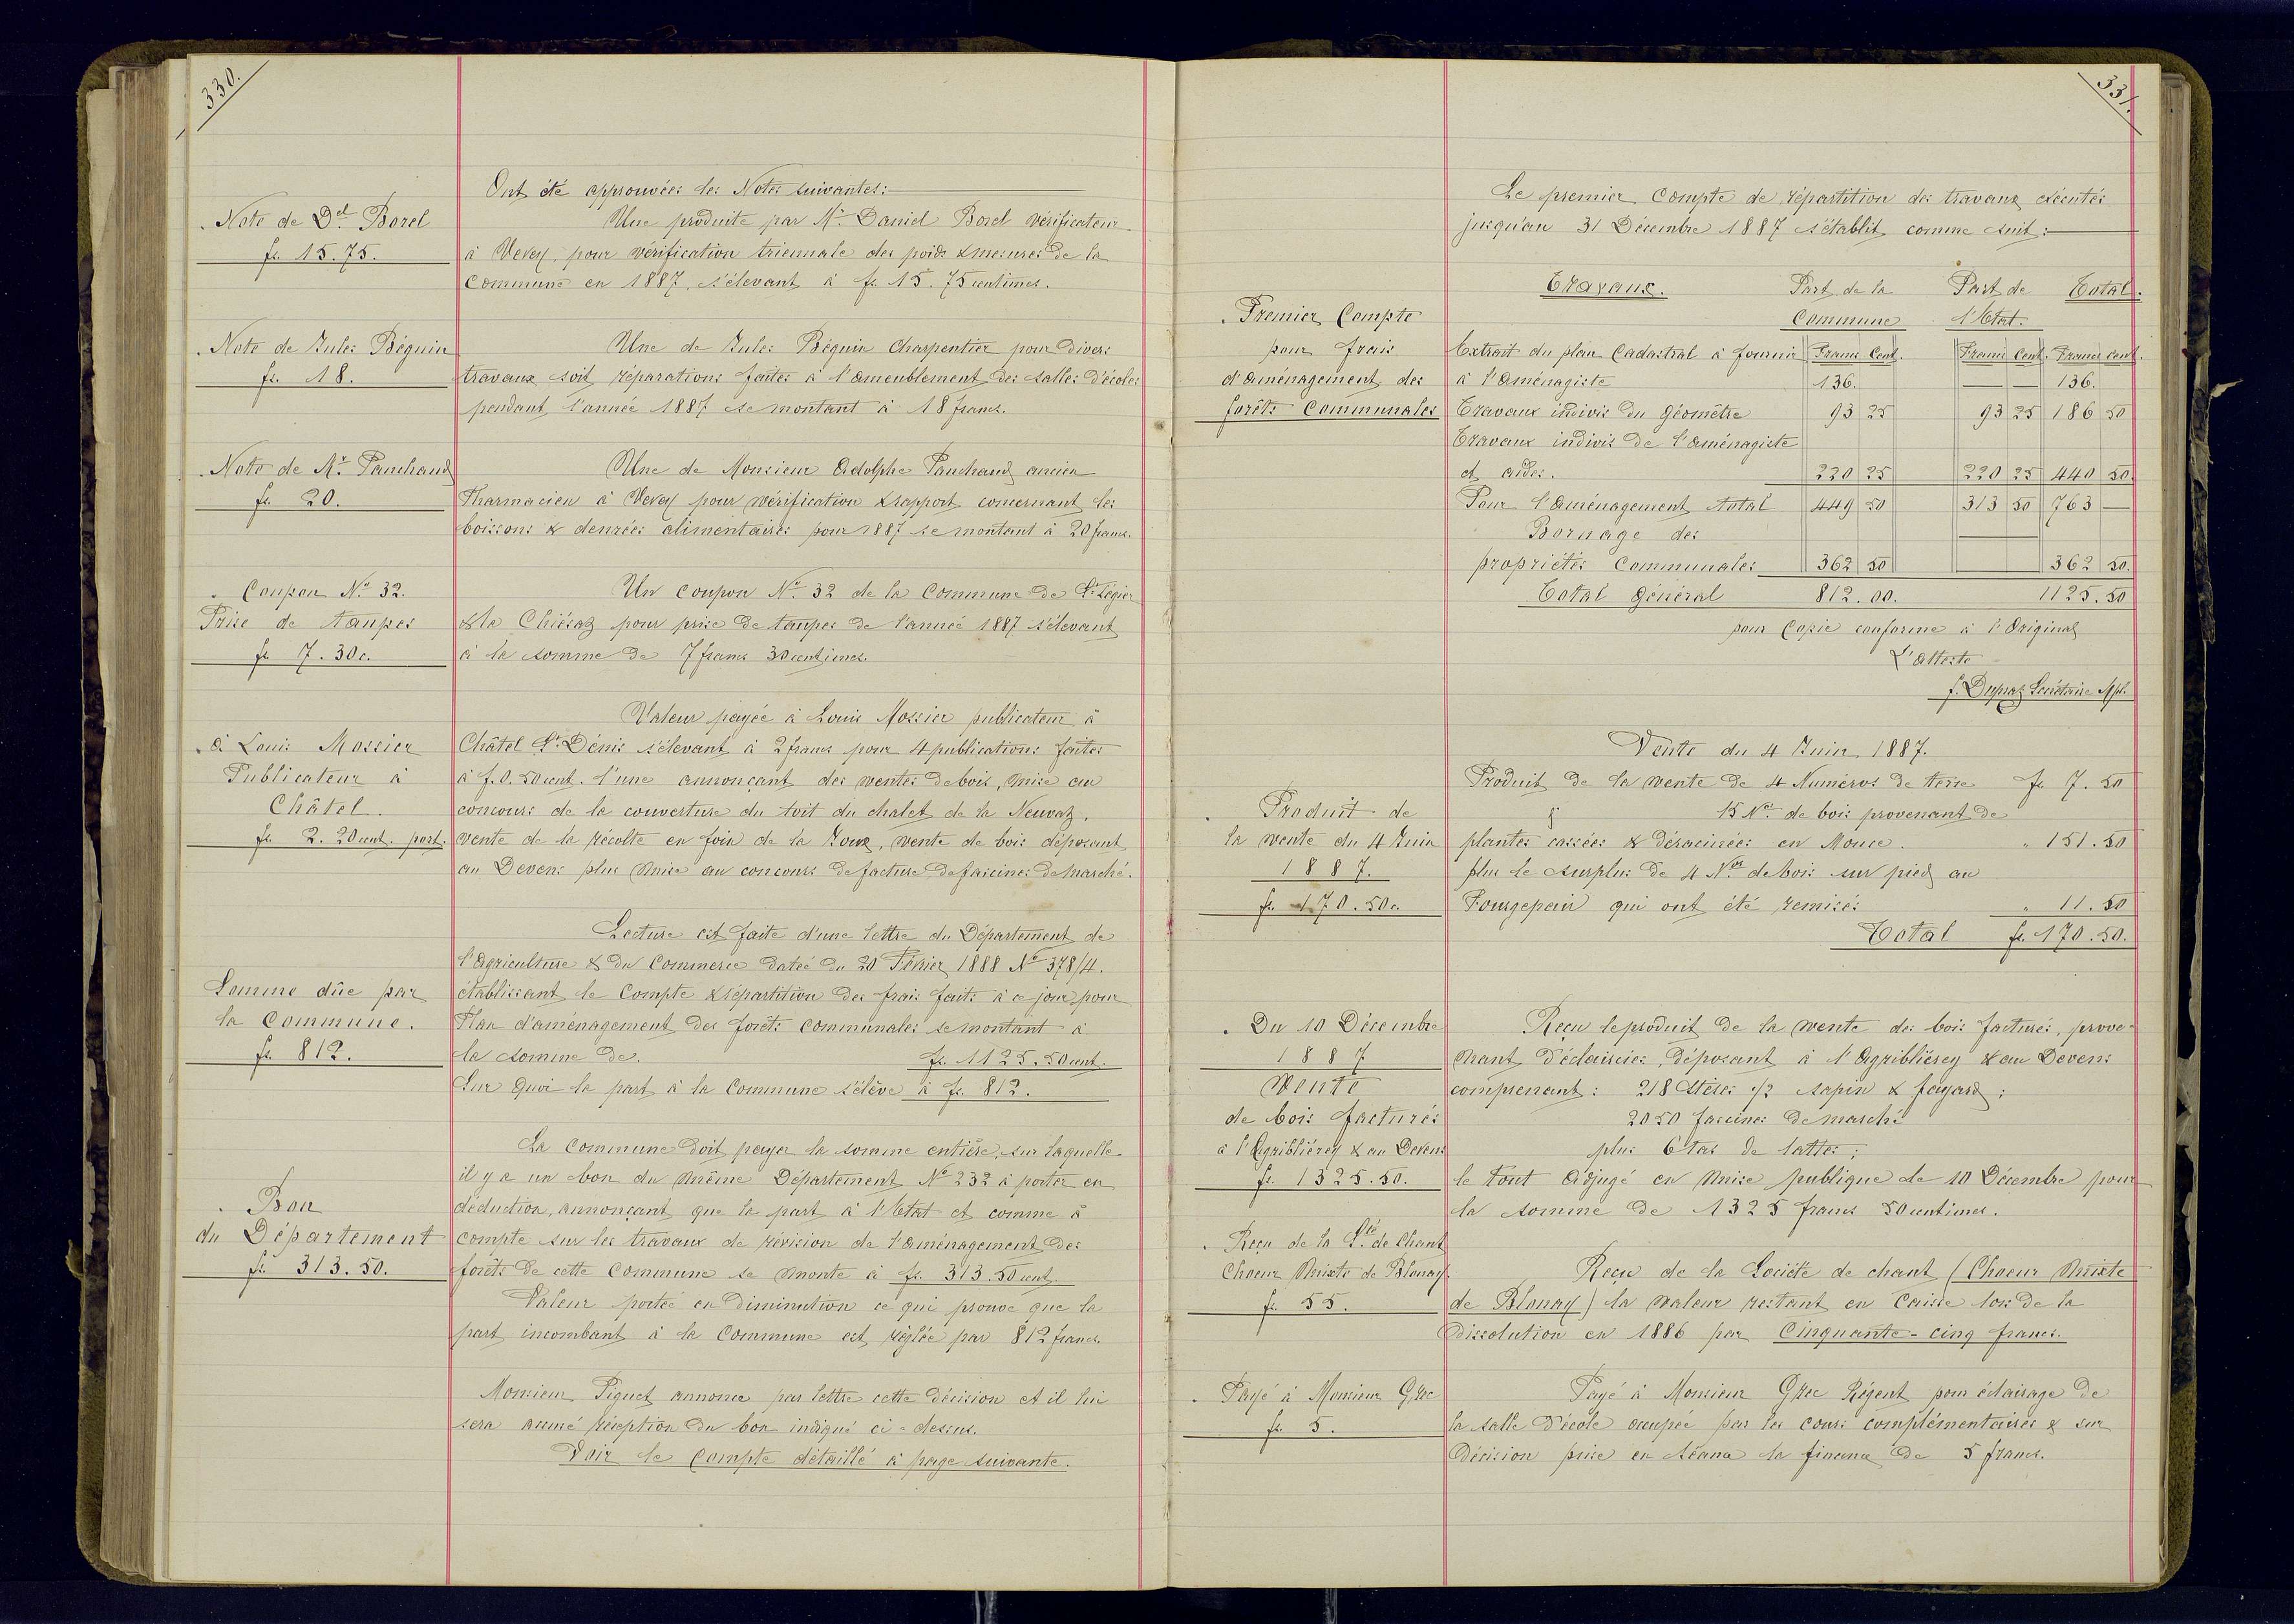 330.
Ont été approuvées les Notes suivantes:
. Note de Del Borel
fr. 15.75.
Une produite par Mr. Daniel Borel vérificateur
à Vevey, pour vérification triennale des poids & mesures de la
Commune en 1887, s'élevant à fr. 15.75 centimes.
. Note de Jules Béguin
fr. 18.
Une de Jules Béguin Charpentier pour divers
travaux soit réparations faites à l'ameublement des salles d'écoles
pendant l'année 1887 se montant à 18 francs.
. Note de Mr. Panchaud
fr. 20.
Une de Monsieur Adolphe Panchaud ancien
Pharmacien à Vevey pour vérification & rapport concernant les
boissons & denrées alimentaires pour 1887 se montant à 20 francs.
. Coupon No. 32.
Prise de taupes
fr. 7.30c.
Un Coupon No. 32 de la Commune de St. Légier
& la Chiésaz pour prise de taupes de l'année 1887 s'élevant
à la somme de 7 francs 30 centimes.
. à Louis Mossier
Publicateur à
Châtel.
fr. 2.20 cent. port.
Valeur payée à Louis Mossier publicateur à
Châtel St. Dénis s'élevant à 2 francs pour 4 publications faites
à f. 0.50 cent. l'une annonçant des ventes de bois, mise au
concours de la couverture du toit du chalet de la Neuvaz,
vente de la récolte en foin de la Joux, vente de bois déposant
au Devens plus mise au concours de facture de fascines de marché.
Somme dûe par
la Commune.
fr. 812.
Lecture est faite d'une lettre du Département de
l'Agriculture & du Commerce datée du 20 Février 1888 No 378/4.
établissant le Compte & répartition des frais faits à ce jour pour
Plan d'aménagement des forêts communales se montant à
la somme de. fr. 1125.50 cent.
Sur quoi la part à la Commune s'élève à fr. 812.
. Bon
du Département
fr. 313.50.
La Commune doit payer la somme entière, sur laquelle
il y a un bon du même Département No 232 à porter en
déduction, annonçant que la part à l'Etat et comme à
compte sur les travaux de révision de l'Aménagement des
forêts de cette Commune se monte à fr. 313.50 cent.
Valeur portée en diminution ce qui prouve que la
part incombant à la Commune est réglée par 812 francs.
Monsieur Piguet annonce par lettre cette décision et il lui
sera accusé réception du bon indiqué ci-dessus.
Voir le Compte détaillé à page suivante.
331.
Le premier Compte de répartition des travaux exécutés
jusqu'au 31 Décembre 1887 s'établit comme suit:
. Premier Compte
pour frais
d'aménagement des
forêts Communales
Travaux. Part de la Part de Total.
Commune l'Etat.
Extrait du plan Cadastral à fournir Francs Cent. Francs Cent. Francs cent.
à l'Aménagiste 136. — — 136.
Travaux indivis du Géomètre 93 25 93 25 186 50
Travaux indivis de l'Aménagiste
et aides. 220 25 220 25 440 50.
Pour l'Aménagement total 449 50 313 50 763 —
Bornage des
propriétés Communales 362 50 — 362 50.
Total général 812.00. 1125.50
pour Copie conforme à l'Original
L'atteste
f. Dupraz Secrétaire Mpl.
Vente du 4 Juin 1887.
. Produit de
la vente du 4 Juin
1887.
fr. 170.50c.
Produit de la vente de 4 Numéros de terre fr. 7.50
§ 15 Nos. de bois provenant de
plantes cassées & déracinées en Mouce. " 151.50
plus le surplus de 4 Nos de bois sur pied au
Fourgepain qui ont été remisés " 11.50
Total fr. 170.50.
. Du 10 Décembre
1887
Vente
de bois facturés
à l'Agribliérey & au Devens
fr. 1325.50.
Reçu le produit de la vente des bois facturés, prove-
nant d'éclaircies, déposant à l'Agribliérey & au Devens
comprenant: 218 Stères 1/2 sapin & fayard;
2050 fascines de marché
plus 6 tas de lattes;
le tout adjugé en mise publique de 10 Décembre pour
la somme de 1325 francs 50 centimes.
. Reçu de la Sté. de Chant
Choeur Mixte de Blonay
fr. 55.
Reçu de la Société de chant (Choeur Mixte
de Blonay) la valeur restant en Caisse lors de la
dissolution en 1886 par Cinquante-cinq francs.
. Payé à Monsieur Grec
fr. 5.
Payé à Monsieur Grec Régent pour éclairage de
la salle d'école occupée par les cours complémentaires & sur
décision prise en séance la finance de 5 francs.